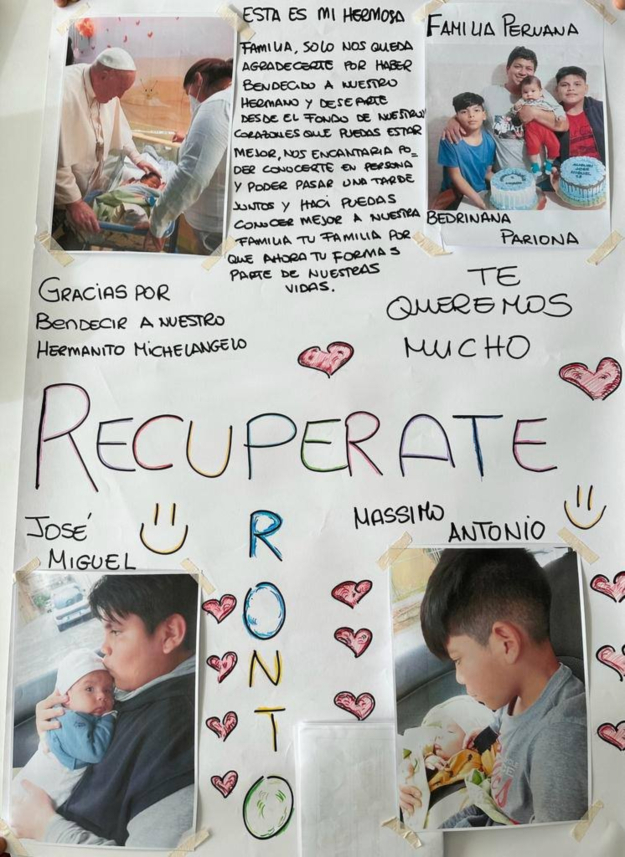 ESTA ES MI HERMOSA
FAMILIA, SOLO NOS QUEDA
AGRADECERTE POR HABER
BENDECIDO A NUESTRO
HERMANO Y DESEARTE
DESDE EL FONDO DE NUESTROS
CORAZONES QUE PUEDAS ESTAR
MEJOR, NOS ENCANTARIA PO=
DER CONOCERTE EN PERSONA
Y PODER PASAR UNA TARDE
JUNTOS Y HACI PUEDAS
CONOCER MEJOR A NUESTRA
FAMILIA TU FAMILIA POR
QUE AHORA TU FORMAS
PARTE DE NUESTRAS
VIDAS.
FAMILIA PERUANA
BEDRINANA
PARIONA
GRACIAS POR
BENDECIR A NUESTRO
HERMANITO MICHELANGELO
TE
QUEREMOS
MUCHO
RECUPERATE
JOSÉ
MIGUEL
MASSIMO
ANTONIO
PRONTO